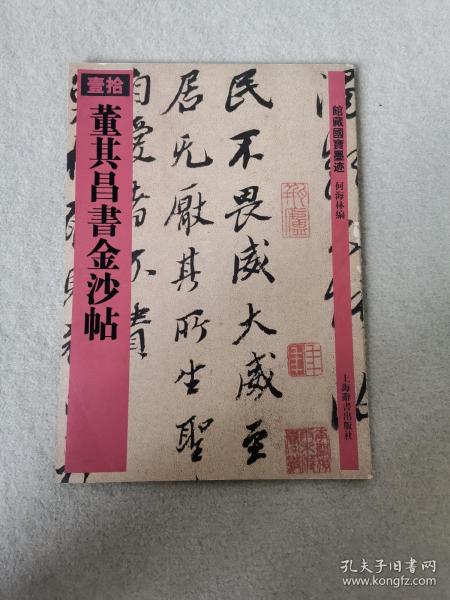 館藏國寶墨迹
何海林編
上海辭書出版社
民不畏威大威至
居无厭其所生聖
自愛者不責
壹拾
董其昌書金沙帖
孔夫子旧书网
www.kongfz.com